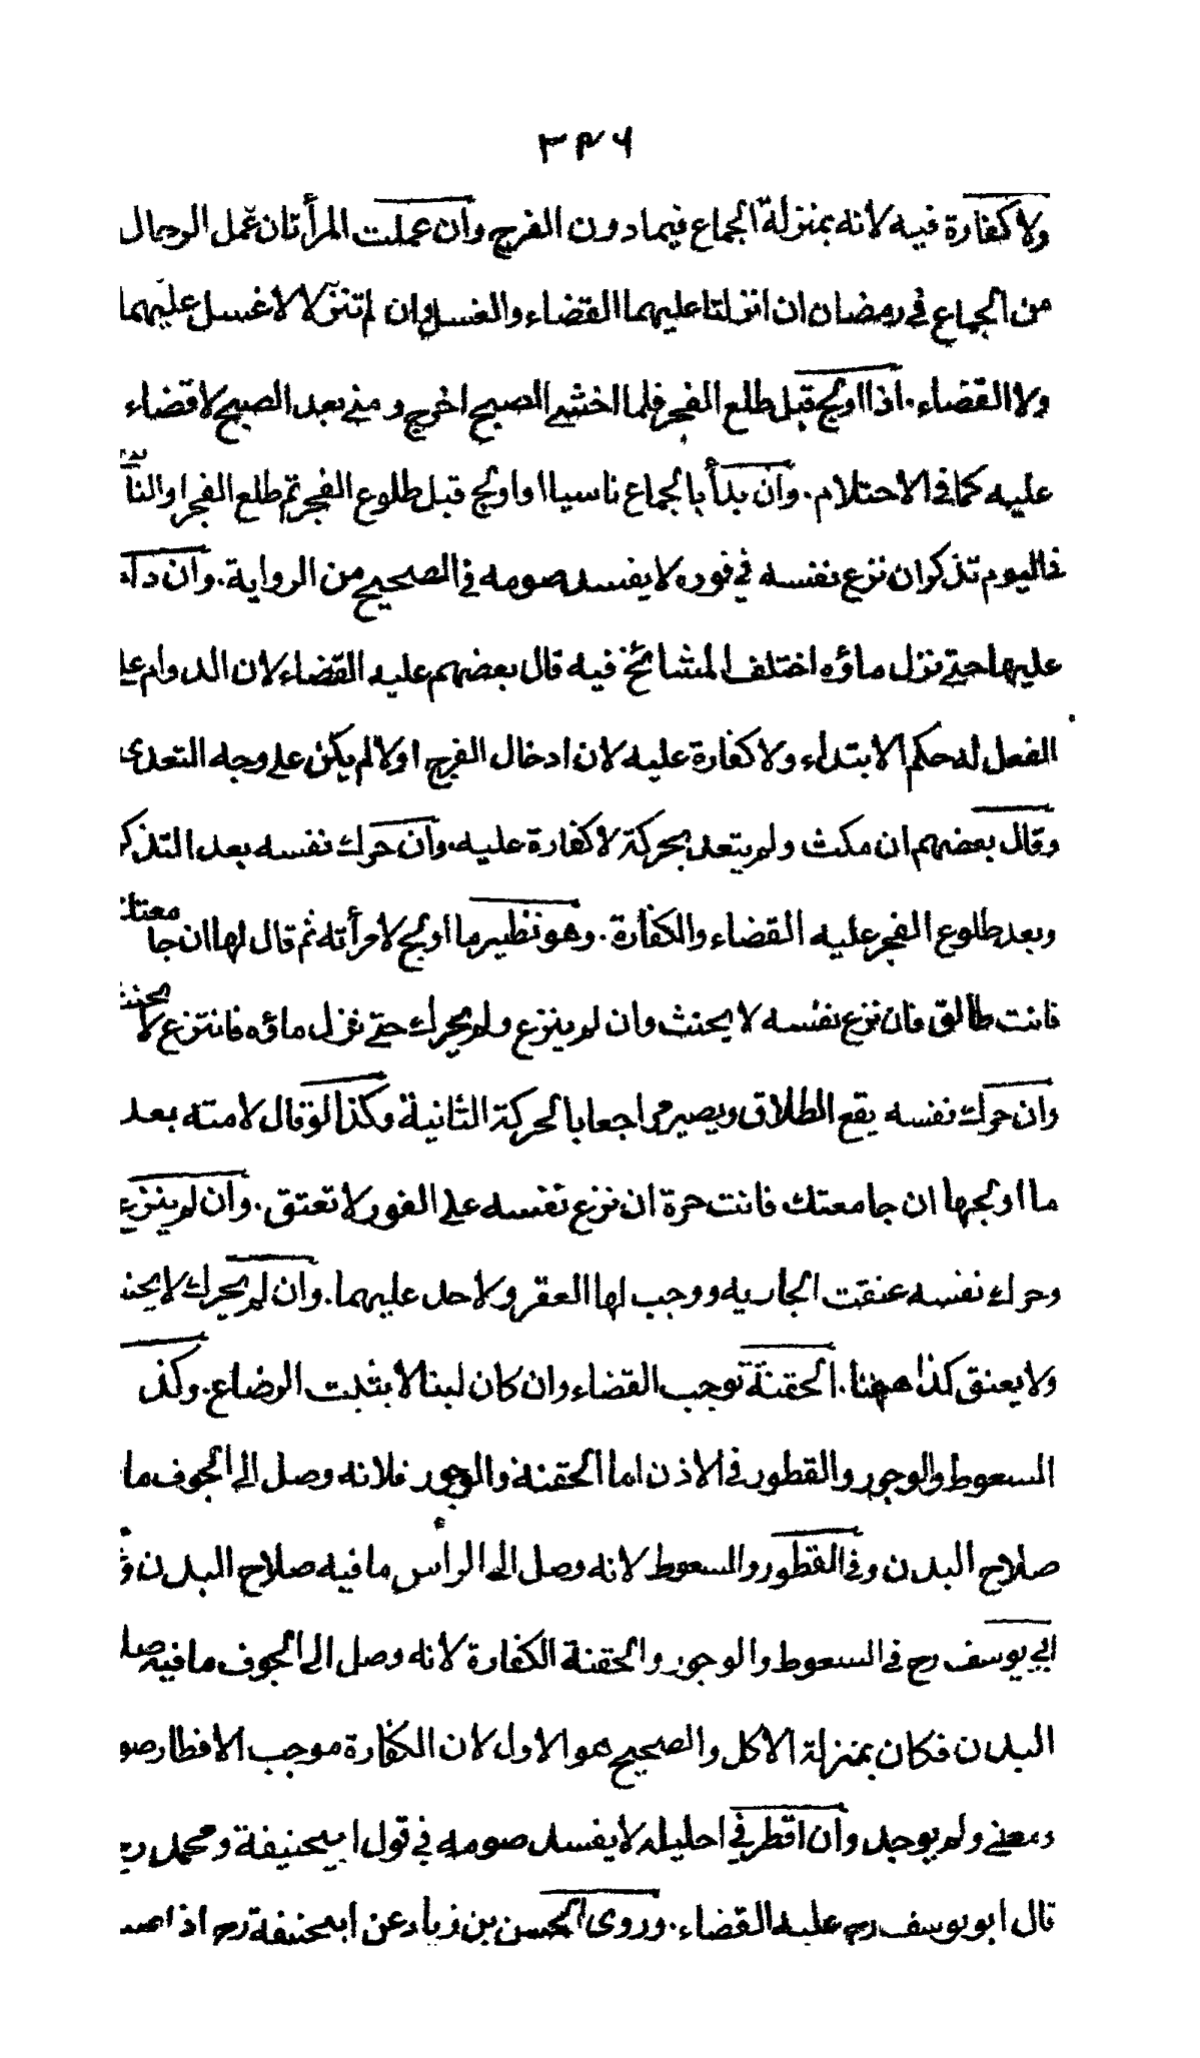 ٣٤٦
ولا كفارة فيه لانه بمنزلة الجماع فيما دون الفرج وان عملت المرأتان عمل الرجال
من الجماع في رمضان ان انزلتا عليهما القضاء والغسل وان لم تنزلا لا غسل عليهما
ولا القضاء. اذا اولج قبل طلع الفجر فلما اخشى الصبح اخرج ومنى بعد الصبح لا قضاء
عليه كما في الاحتلام. وان بدأ بالجماع ناسيا او اولج قبل طلوع الفجر ثم طلع الفجر او
اليوم تذكر ان نزع نفسه في فوره لا يفسد صومه في الصحيح من الرواية. وان دام
عليها حتى نزل ماؤه اختلف المشائخ فيه قال بعضهم عليه القضاء لان الدوام على
الفعل له حكم الابتداء ولا كفارة عليه لان ادخال الفرج اولا لم يكن على وجه التعدى
وقال بعضهم ان مكث ولم يتعد بحركة لا كفارة عليه. وان حرك نفسه بعد التذكر
وبعد طلوع الفجر عليه القضاء والكفارة. وهو نظير ما اولج لامرأته ثم قال لها ان جامعتك
فانت طالق فان نزع نفسه لا يحنث وان لم ينزع ولم يحرك حتى نزل ماؤه فانتزع لا يحنث
وان حرك نفسه يقع الطلاق ويصير مراجعا بالحركة الثانية وكذا لو قال لامته بعد
ما اولجها ان جامعتك فانت حرة ان نزع نفسه على الفور لا تعتق. وان لم ينزع
وحرك نفسه عتقت الجارية ووجب لها العقر ولا حد عليهما. وان لم يحرك لا يحنث
ولا يعتق كذا ههنا. الحقنة توجب القضاء وان كان لبنا لا يثبت الرضاع. وكذ
السعوط والوجور والقطور في الاذن اما الحقنة والوجور فلانه وصل الى الجوف ما
صلاح البدن وفي القطور والسعوط لانه وصل الى الرأس ما فيه صلاح البدن و
ابي يوسف رح في السعوط والوجور والحقنة الكفارة لانه وصل الى الجوف ما فيه صلا
البدن فكان بمنزلة الاكل والصحيح هو الاول لان الكفارة موجب الافطار صو
ومعنى ولم يوجد وان اقطر في احليله لا يفسد صومه في قول ابيحنيفة ومحمد رح
قال ابو يوسف رح عليه القضاء. وروى الحسن بن زياد عن ابيحنيفة رح اذا